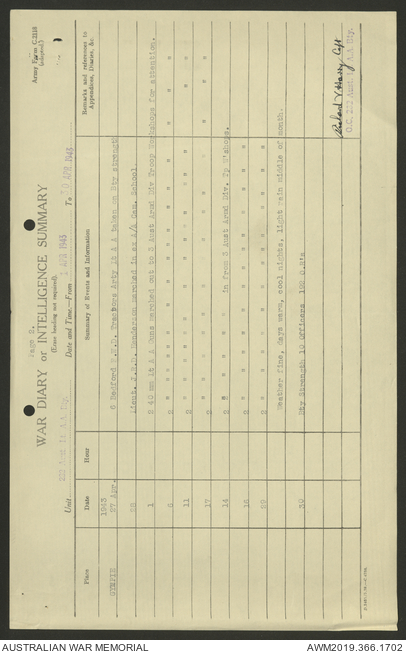 Page 2.
Army Form C.2118
(Adapted.)
WAR DIARY or INTELLIGENCE SUMMARY
(Erase heading not required).
Unit Aust Lt A.A. Bty.
Date and Time.—From 1 APR 1943 To 30 APR 1943
Place Date Hour Summary of Events and Information Remarks and references to
Appendices, Diaries, &c.
1943
GYMPIE 27 Apr. 6 Bedford Tractors Arty Lt A A taken on Bty strength
28 Lieut. J.R.D. Henderson marched in as A/A Gen. School.
1 2 40 mm Lt A A Guns marched out to 3 Aust Armd Div Troop Workshops for attention.
2 " " " " " " " " " "
11 2 " " " " " " " " " "
17 2 " " " " " " " " " "
14 in from 3 Aust Armd Div. Tp W'shops.
16 2 " " " " " " "
29 2 " " " " " " "
Weather fine, days warm, cool nights, light rain middle of month.
30 Bty Strength 10 Officers O.R's
Capt
O.C. Aust. Lt. A.A. Bty.
AUSTRALIAN WAR MEMORIAL
AWM2019.366.1702